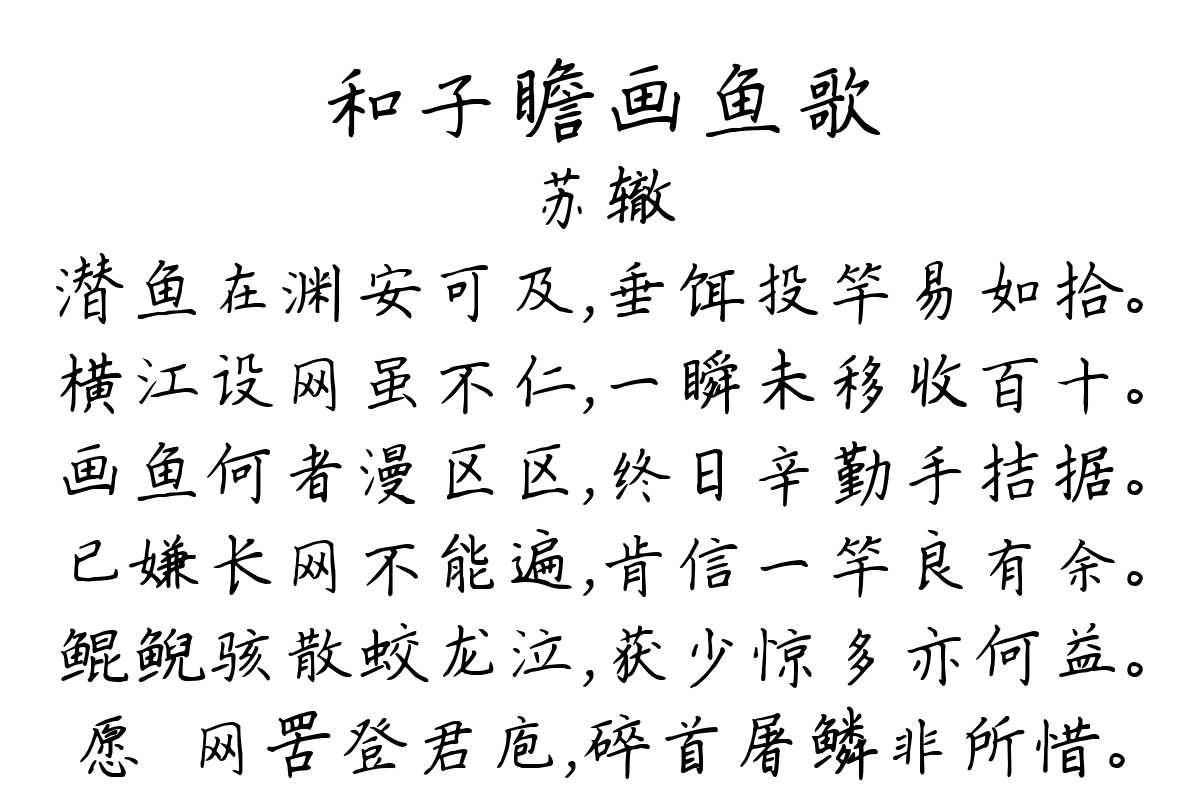 和子瞻画鱼歌
苏辙
潜鱼在渊安可及,垂饵投竿易如拾。
横江设网虽不仁,一瞬未移收百十。
画鱼何者漫区区,终日辛勤手拮据。
已嫌长网不能遍,肯信一竿良有余。
鲲鲵骇散蛟龙泣,获少惊多亦何益。
愿 网罟登君庖,碎首屠鳞非所惜。